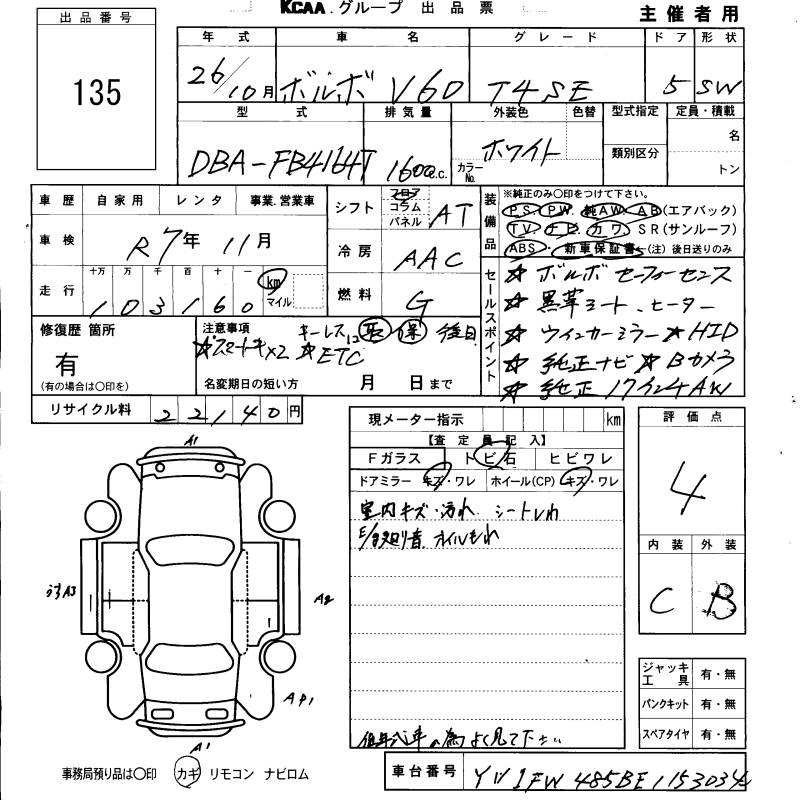 KCAA グループ 出品票 主催者用
出品番号
135
年式 車名 グレード ドア 形状
26/10月 ボルボ V60 T4SE 5 SW
型式 排気量 外装色 色替 型式指定 定員・積載
DBA-FB4164T 1600c.c. カラーNo. ホワイト 類別区分 名
トン
車歴 自家用 レンタ 事業.営業車
車検 R7年 11月
走行 十万 万 千 百 十 一 km マイル
103160
シフト フロア コラム パネル AT
冷房 AAC
燃料 G
装備品 ※純正のみ○印をつけて下さい。
PS・PW・純AW・AB(エアバック)
TV・ナビ・カワ・SR(サンルーフ)
ABS・新車保証書・(注)後日送りのみ
セールスポイント
☆ ボルボ セーフィーセンス
☆ 黒革シート、ヒーター
☆ ウィンカーミラー ☆HID
☆ 純正ナビ ☆Bカメラ
☆ 純正17インチAW
修復歴 箇所
有
(有の場合は○印を)
注意事項 キーレス 取 保 後日
x2 ☆ETC
名変期日の短い方 月 日まで
リサイクル料 22140円
現メーター指示 km
【査定員記入】
Fガラス トビ石 ヒビワレ
ドアミラー キズ・ワレ ホイール(CP) キズ・ワレ
室内キズ・汚れ シートしわ
オイルもれ
為よく見て下さい
評価点
4
内装 外装
C B
A1
A3
A2
AP1
A1
ジャッキ 工具 有・無
パンクキット 有・無
スペアタイヤ 有・無
事務局預り品は○印 カギ リモコン ナビロム
車台番号 YV1FW485BE1153034